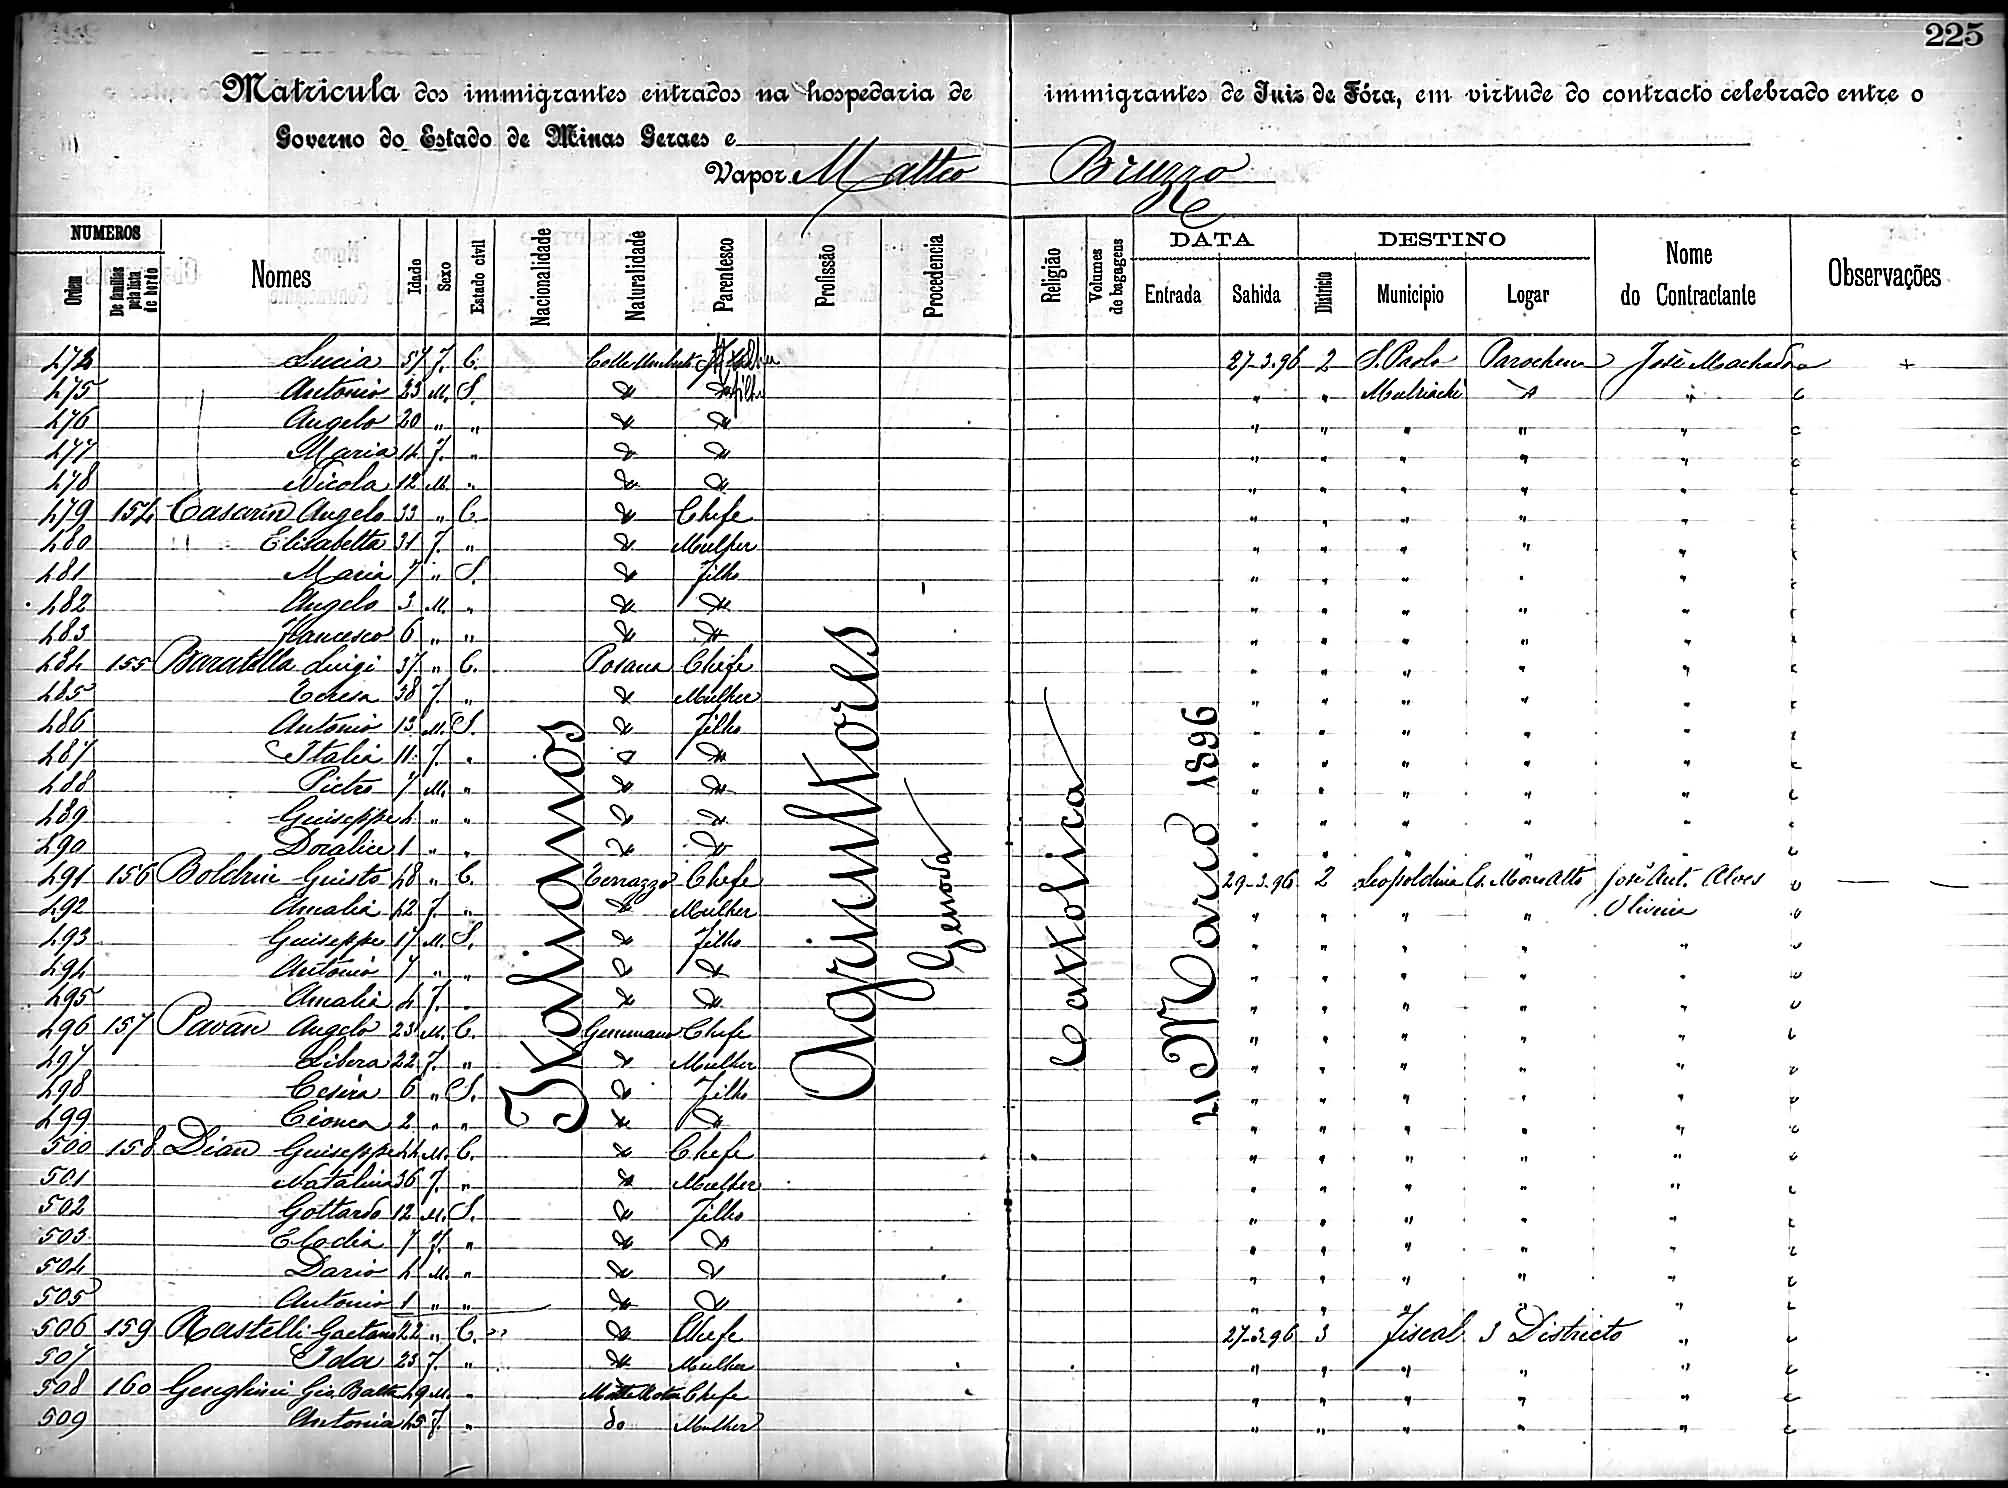 225
Matricula dos immigrantes entrados na hospedaria de immigrantes de Juiz de Fóra, em virtude do contracto celebrado entre o
Governo do Estado de Minas Geraes e
Vapor Matteo Bruzzo
NUMEROS DATA DESTINO
Ordem De familias pela lista de bordo Nomes Idade Sexo Estado civil Nacionalidade Naturalidade Parentesco Profissão Procedencia Religião Volumes de bagagens Entrada Sahida Districto Municipio Logar Nome do Contractante Observações
Italianos
Agricultores
Genova
Cattolica
21 Março 1896
474 Lucia 57 F. C. Mulher 27-3-96 2 S. Paolo José Machado +
475 Antonio 23 M. S. " filho " " Muriaché " "
476 Angelo 20 " " " " " " " " "
477 Maria 14 F. " " " " " " " "
478 Nicola 12 M. " " " " " " " "
479 154 Casarin Angelo 33 " C. " Chefe " " " " "
480 Elisabetta 31 F. " " Mulher " " " " "
481 Maria 7 " S. " Filho " " " " "
482 Angelo 3 M. " " " " " " " "
483 Francesco 6 " " " " " " " " "
484 155 Baratella Luigi 37 " C. Poiana Chefe " " " " "
485 Teresa 38 F. " " Mulher " " " " "
486 Antonio 13 M. S. " Filho " " " " "
487 Italia 11 F. " " " " " " " "
488 Pietro 7 M. " " " " " " " "
489 Guiseppe 4 " " " " " " " " "
490 Doralice 1 " " " " " " " " "
491 156 Boldrin Giusto 48 " C. Terrazzo Chefe 29-3-96 2 Leopoldina C. Monte Alto José Ant. Alves
492 Amalia 42 F. " " Mulher " " " " Oliveira
493 Guiseppe 17 M. S. " Filho " " " " "
494 Antonio 7 " " " " " " " " "
495 Amalia 4 F. " " " " " " " "
496 157 Pavan Angelo 23 M. C. Chefe " " " " "
497 Libera 22 F. " " Mulher " " " " "
498 Cesira 6 " S. " Filho " " " " "
499 2 " " " " " " " " "
500 158 Dian Guiseppe 44 M. C. " Chefe " " " " "
501 Natalina 36 F. " " Mulher " " " " "
502 Gottardo 12 M. S. " Filho " " " " "
503 Elodia 7 F. " " " " " " " "
504 Dario 4 M. " " " " " " " "
505 Antonio 1 " " " " " " " " "
506 159 Rastelli Gaetano 22 " C. " Chefe 27-3-96 3 Fiscal 3 Districto "
507 Ida 23 F. " " Mulher " " " " "
508 160 Genghini Gio Batta 49 M. " Chefe " " " " "
509 Antonia 45 F. " do Mulher " " " " "